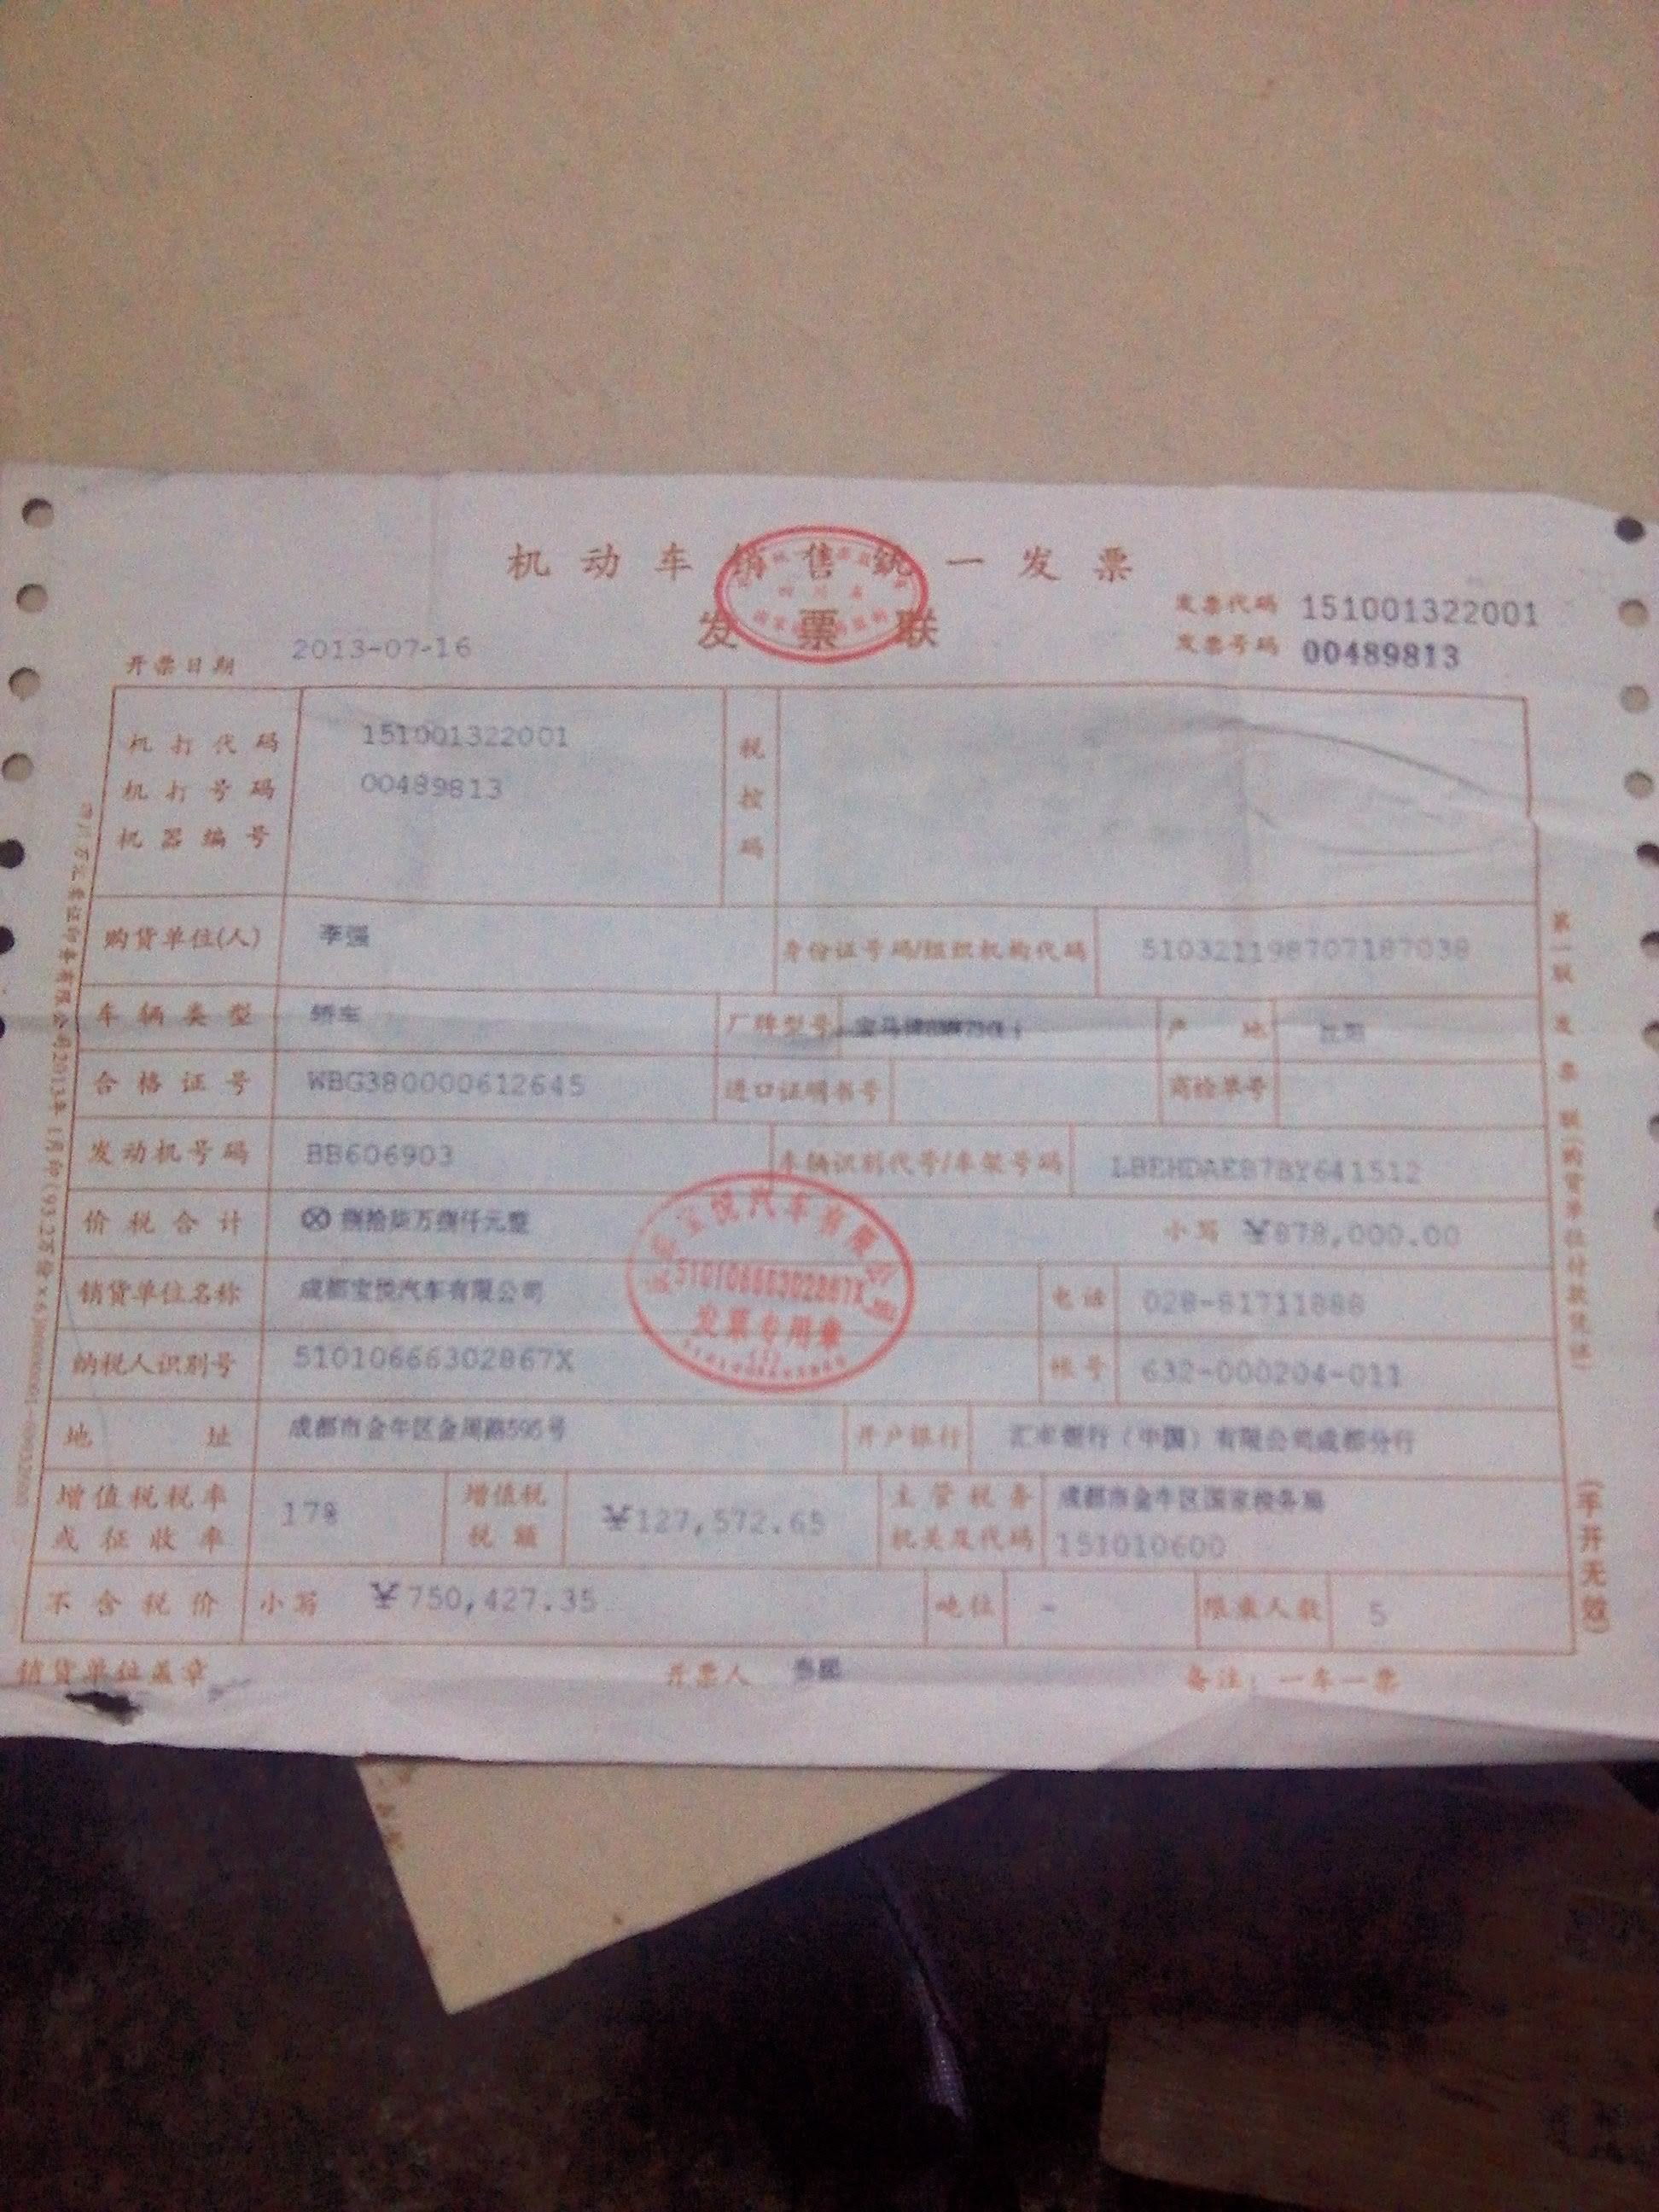 机动车销售统一发票
发票联
发票代码 151001322001
发票号码 00489813
开票日期 2013-07-16
机打代码 151001322001
机打号码 00489813
机器编号
税控码
购货单位(人) 李强 身份证号码/组织机构代码 510321198707187038
车辆类型 轿车 厂牌型号 宝马牌 产地
合格证号 WBG380000612645 进口证明书号 商检单号
发动机号码 BB606903 车辆识别代号/车架号码 LBEHDAEB7BY641512
价税合计 ⊗ 捌拾柒万捌仟元整 小写 ¥878,000.00
销货单位名称 成都宝悦汽车有限公司 电话 028-81711888
纳税人识别号 51010666302867X 账号 632-000204-011
地址 成都市金牛区金周路595号 开户银行 汇丰银行（中国）有限公司成都分行
增值税税率或征收率 17% 增值税税额 ¥127,572.65 主管税务机关及代码 成都市金牛区国家税务局 151010600
不含税价 小写 ¥750,427.35 吨位 - 限乘人数 5
销货单位盖章 开票人 备注：一车一票
第一联 发票联(购货单位付款凭证)
(手开无效)
宝悦汽车有限公司
51010666302867X
发票专用章